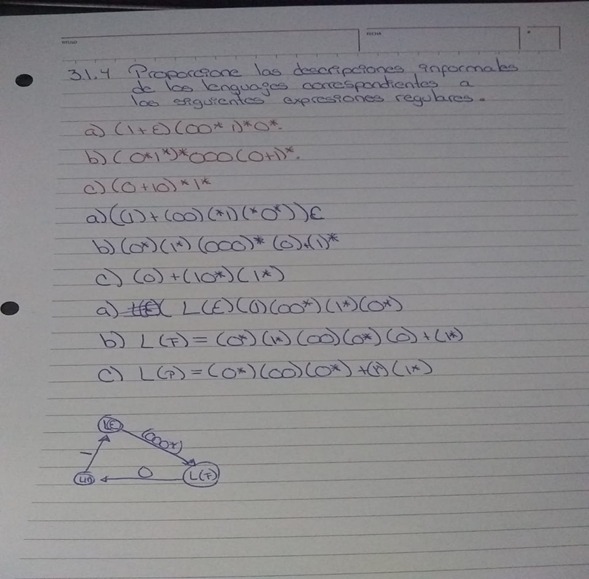 3.1.4 Proporcione las descripciones informales
de los lenguages correspondientes a
las siguientes expresiones regulares.
a) (1+ε)(00*1)*0*.
b) (0*1*)*000(0+1)*.
c) (0+10)*1*
a) ((1)+(00)(*1)(*0*))ε
b) (0*)(1*)(000)*(0)+(1)*
c) (0)+(10*)(1*)
a) ( L(ε)(1)(00*)(1*)(0*)
b) L(F) = (0*)(1*)(00)(0*)(0)+(1*)
c) L(F) = (0*)(00)(0*)+(1*)(1*)
(00*)
1
0
L(F)